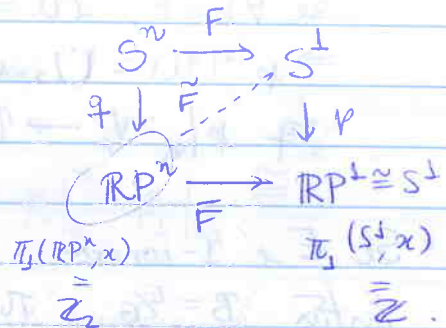 Sⁿ F S¹
q F̃ p
ℝPⁿ F̄ ℝP¹ ≅ S¹
π₁(ℝPⁿ, x) π₁(S¹, x)
= =
ℤ₂ ℤ.